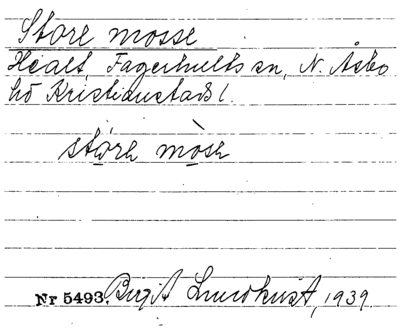 Store mosse
Hcalt, Fagerhults sn, N. Åsbo
hd Kristianstads l.
stóre mòse
Nr 5493. Birgit Lundkvist, 1939.